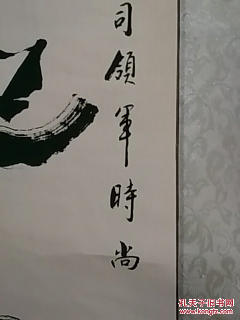 司領軍時尚
孔夫子旧书网